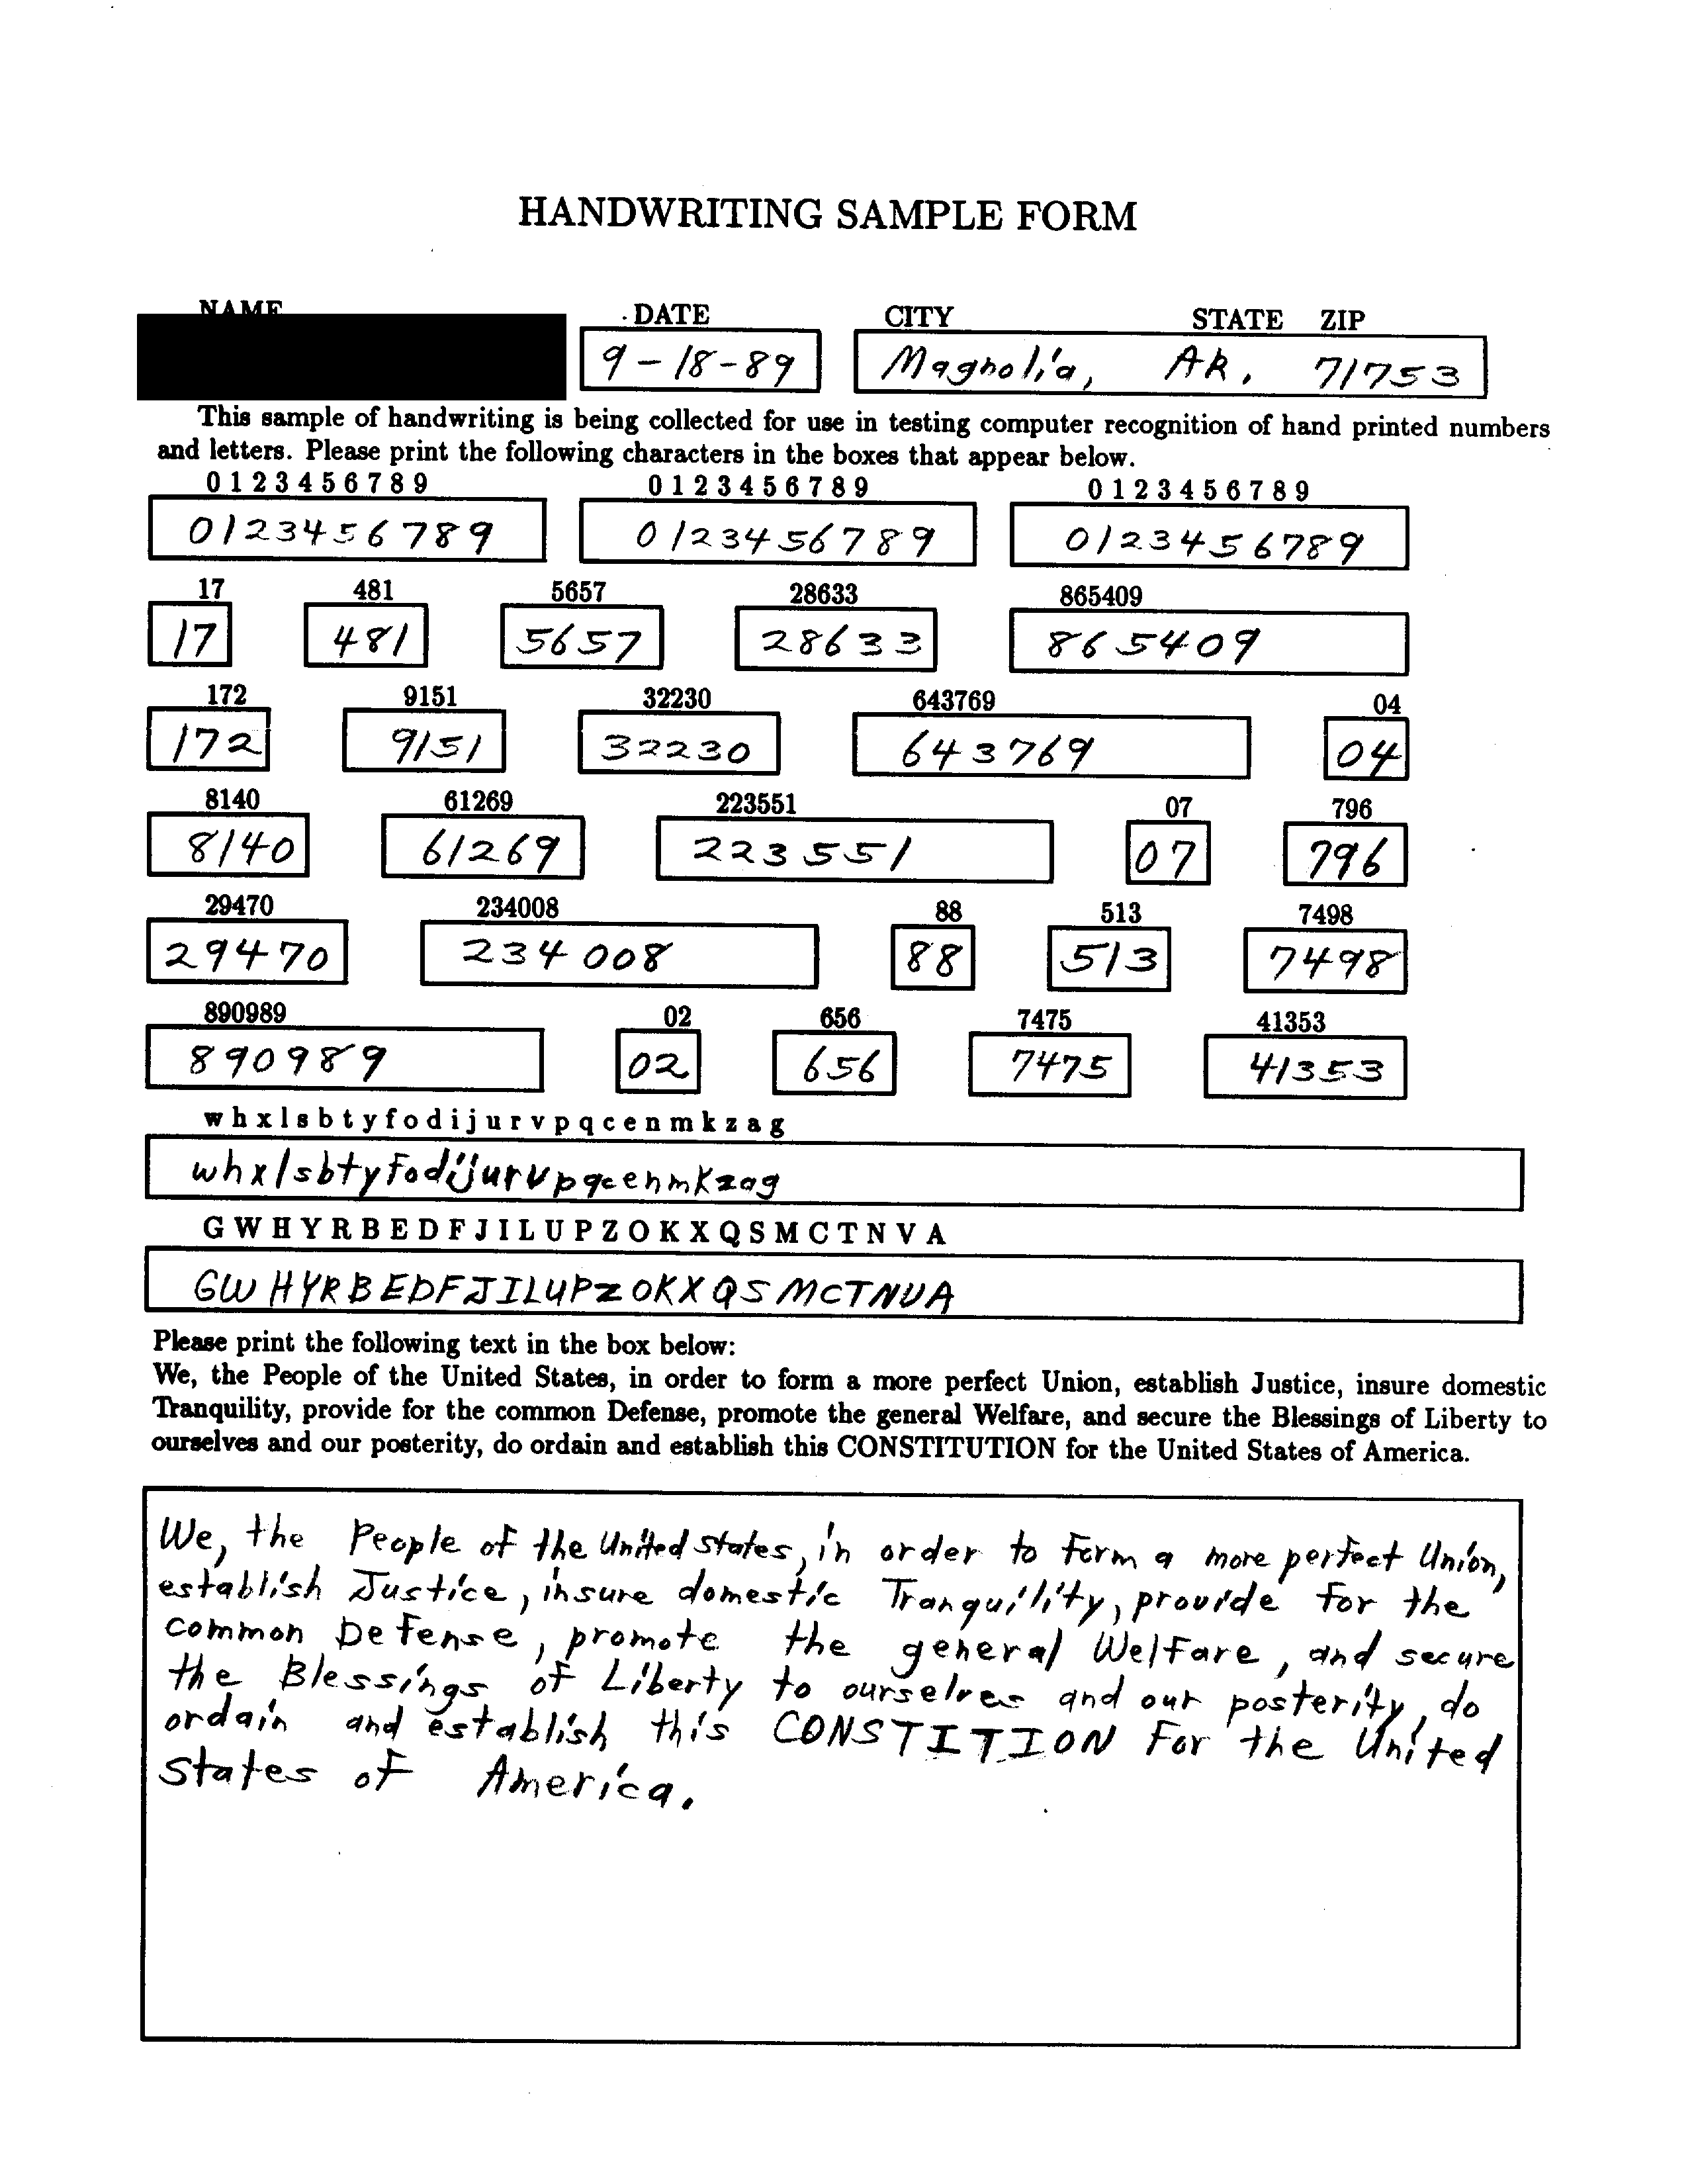 HANDWRITING SAMPLE FORM
NAME DATE CITY STATE ZIP
9-18-89 Magnolia, AR. 71753
This sample of handwriting is being collected for use in testing computer recognition of hand printed numbers
and letters. Please print the following characters in the boxes that appear below.
0 1 2 3 4 5 6 7 8 9 0 1 2 3 4 5 6 7 8 9 0 1 2 3 4 5 6 7 8 9
0123456789 0123456789 0123456789
17 481 5657 28633 865409
17 481 5657 28633 865409
172 9151 32230 643769 04
172 9151 32230 643769 04
8140 61269 223551 07 796
8140 61269 223551 07 796
29470 234008 88 513 7498
29470 234008 88 513 7498
890989 02 656 7475 41353
890989 02 656 7475 41353
w h x l s b t y f o d i j u r v p q c e n m k z a g
whxlsbtyfodijurvpqcenmkzag
G W H Y R B E D F J I L U P Z O K X Q S M C T N V A
GWHYRBEDFJILUPZOKXQSMCTNVA
Please print the following text in the box below:
We, the People of the United States, in order to form a more perfect Union, establish Justice, insure domestic
Tranquility, provide for the common Defense, promote the general Welfare, and secure the Blessings of Liberty to
ourselves and our posterity, do ordain and establish this CONSTITUTION for the United States of America.
We, the People of the United States, in order to form a more perfect Union,
establish Justice, insure domestic Tranquility, provide for the
common Defense, promote the general Welfare, and secure
the Blessings of Liberty to ourselves and our posterity, do
ordain and establish this CONSTITION For the United
States of America.